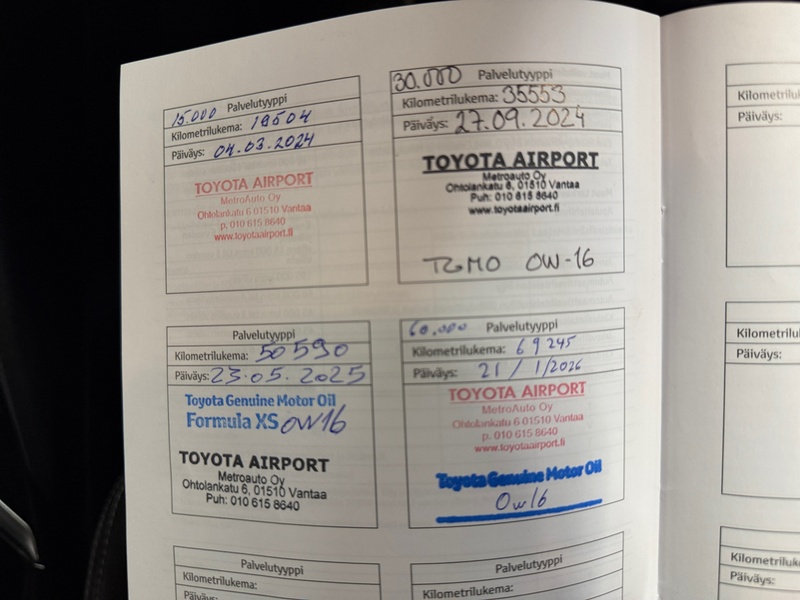 15.000 Palvelutyyppi
Kilometrilukema: 19504
Päiväys: 04.03.2024
TOYOTA AIRPORT
MetroAuto Oy
Ohtolankatu 6 01510 Vantaa
p. 010 615 8640
www.toyotaairport.fi
30.000 Palvelutyyppi
Kilometrilukema: 35553
Päiväys: 27.09.2024
TOYOTA AIRPORT
Metroauto Oy
Ohtolankatu 6, 01510 Vantaa
Puh: 010 615 8640
www.toyotaairport.fi
TGMO OW-16
Palvelutyyppi
Kilometrilukema: 50590
Päiväys: 23.05.2025
Toyota Genuine Motor Oil
Formula XS OW16
TOYOTA AIRPORT
Metroauto Oy
Ohtolankatu 6, 01510 Vantaa
Puh: 010 615 8640
60.000 Palvelutyyppi
Kilometrilukema: 69245
Päiväys: 21/1/2026
TOYOTA AIRPORT
MetroAuto Oy
Ohtolankatu 6 01510 Vantaa
p. 010 615 8640
www.toyotaairport.fi
Toyota Genuine Motor Oil
Ow16
Palvelutyyppi
Kilometrilukema:
Päiväys:
Palvelutyyppi
Kilometrilukema:
Päiväys:
Kilometriluk
Päiväys:
Kilometriluk
Päiväys:
Kilometriluk
Päiväys: